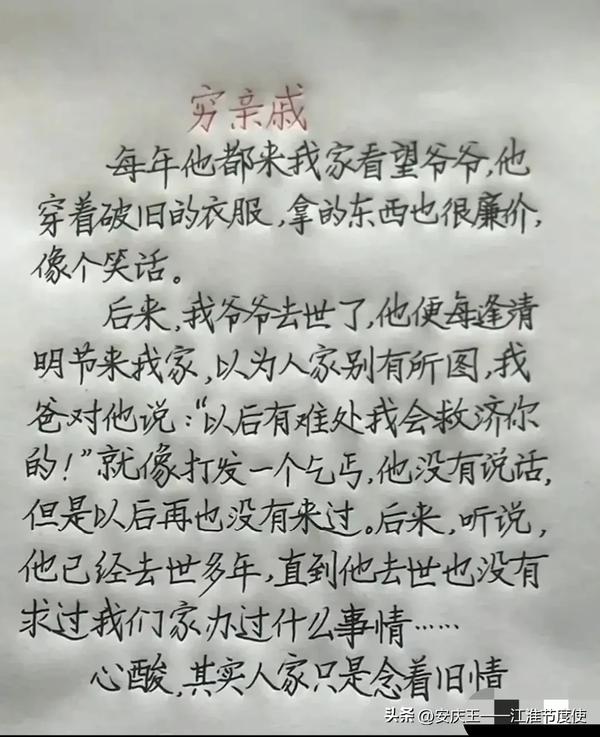 穷亲戚
每年他都来我家看望爷爷,他
穿着破旧的衣服,拿的东西也很廉价,
像个笑话。
后来,我爷爷去世了,他便每逢清
明节来我家,以为人家别有所图,我
爸对他说:“以后有难处我会救济你
的!”就像打发一个乞丐,他没有说话,
但是以后再也没有来过。后来,听说,
他已经去世多年,直到他去世也没有
求过我们家办过什么事情……
心酸,其实人家只是念着旧情
头条 @安庆王——江淮节度使